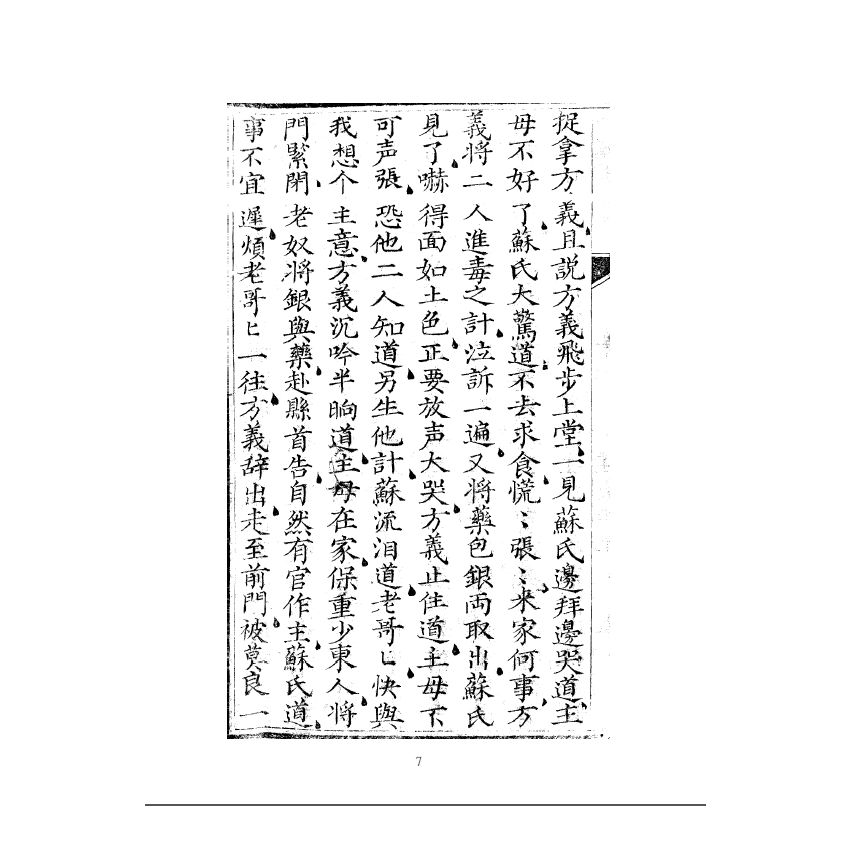 捉拿方義且説方義飛步上堂一見蘇氏邊拜邊哭道主
母不好了蘇氏大驚道不去求食慌〻張〻来家何事方
義將二人進毒之計泣訴一遍又将藥包銀両取出蘇氏
見了嚇得面如土色正要放声大哭方義止住道主母不
可声張恐他二人知道另生他計蘇流泪道老哥匕快與
我想个主意方義沉吟半晌道主母在家保重少東人将
門緊閉老奴将銀與藥赴縣首告自然有官作主蘇氏道
事不宜遲煩老哥匕一往方義辞出走至前門被莫良一
7